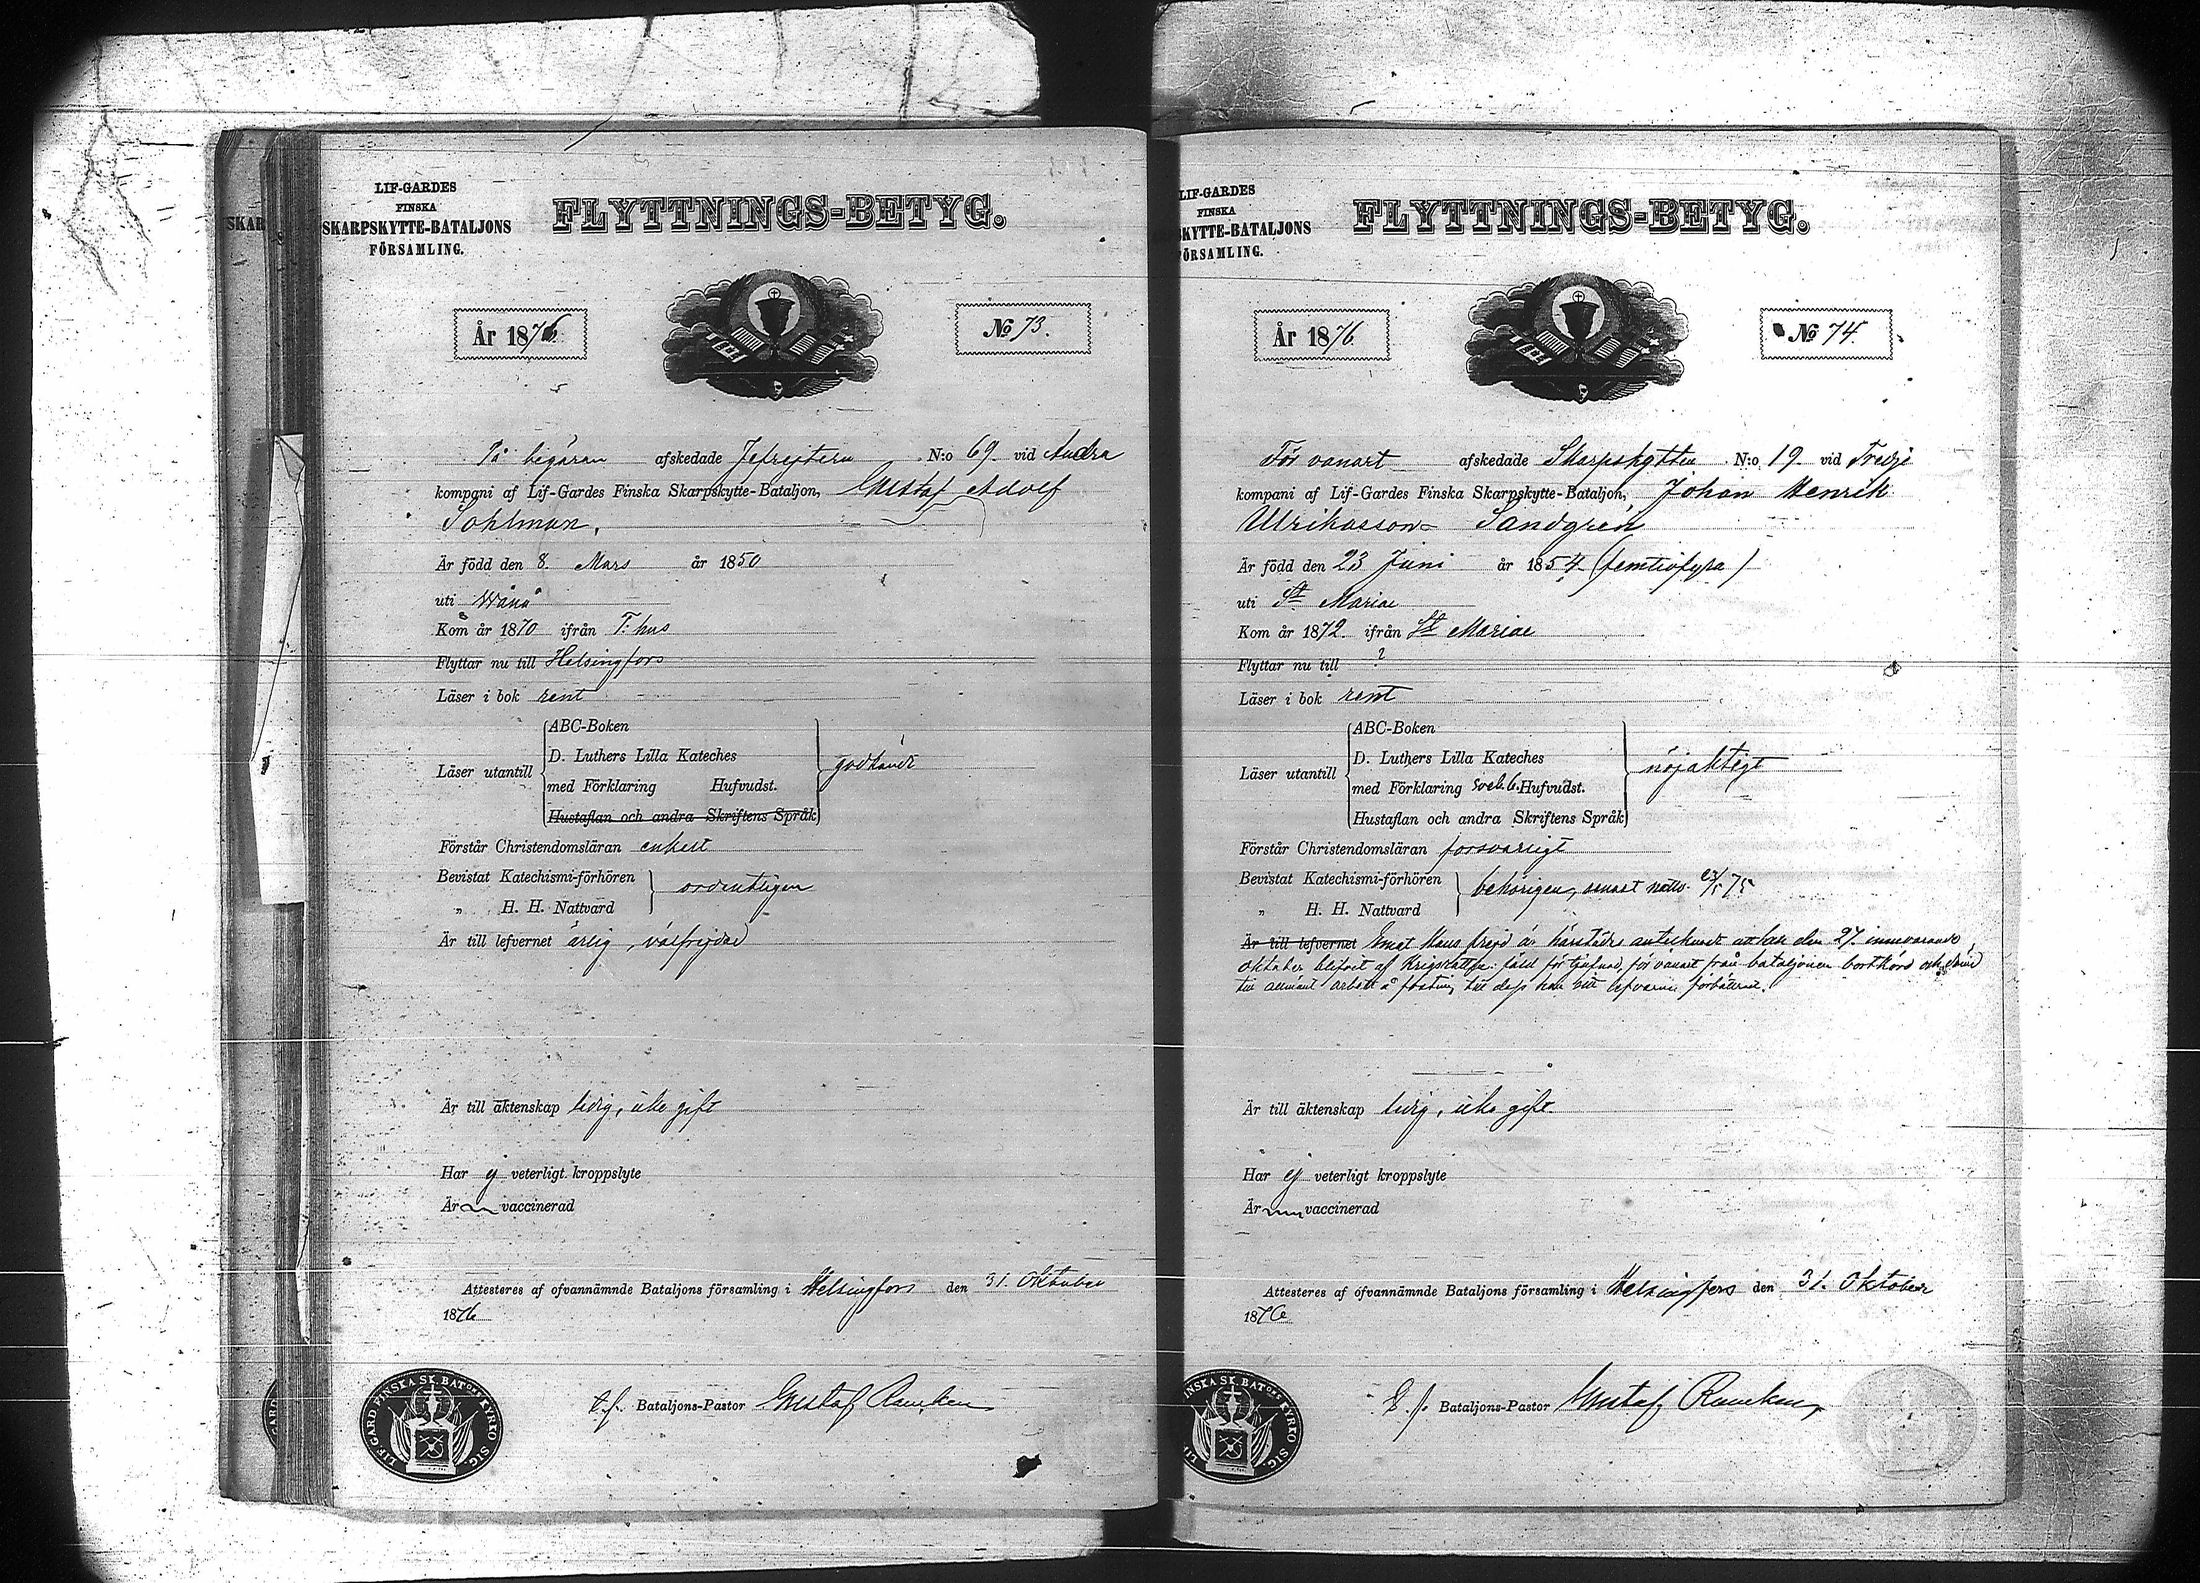 LIF-GARDES
FINSKA
SKARPSKYTTE-BATALJONS
FÖRSAMLING.
FLYTTNINGS-BETYG.
År 1876
No 73.
På begäran afskedade Jefrejtern N:o 69 vid Andra
kompani af Lif-Gardes Finska Skarpskytte-Bataljon, Gustaf Adolf
Sohlman.
Är född den 8. Mars år 1850
uti Wånå
Kom år 1870 ifrån T:hus
Flyttar nu till Helsingfors
Läser i bok rent
ABC-Boken
D. Luthers Lilla Kateches
Läser utantill
med Förklaring Hufvudst.
godkändt
Hustaflan och andra Skriftens Språk
Förstår Christendomsläran enkelt
Bevistat Katechismi-förhören
ordentligen
„ H. H. Nattvard
Är till lefvernet ärlig, välfrejdad
Är till äktenskap ledig, icke gift
Har ej veterligt kroppslyte
Är vaccinerad
Attesteres af ofvannämnde Bataljons församling i Helsingfors den 31. Oktober
1876
t.f. Bataljons-Pastor Gustaf
LIF.GARD.FINSKA SK. BAT:ONS KYRKO SIG.
SKAR
LIF-GARDES
FINSKA
KYTTE-BATALJONS
ÖRSAMLING.
FLYTTNINGS-BETYG.
År 1876
No 74.
För vanart afskedade Skarpskytten N:o 19. vid Tredje
kompani af Lif-Gardes Finska Skarpskytte-Bataljon, Johan Henrik
Ulrikasson Sandgrén
Är född den 23 Juni år 1854 (femtiofyra)
uti St Mariae
Kom år 1872. ifrån St Mariae
Flyttar nu till ?
Läser i bok rent
ABC-Boken
D. Luthers Lilla Kateches
Läser utantill
med Förklaring Hufvudst.
nöjaktigt
Hustaflan och andra Skriftens Språk
Förstår Christendomsläran försvarligt
Bevistat Katechismi-förhören
behörigen, senast nattv. 75
„ H. H. Nattvard
Är till lefvernet Emot Hans frejd är härstädes antecknadt att han den 27. innevarande
Oktober blifvit af Krigsrätten fäld för tjufnad, för vanart från bataljonen bortkörd och dömd
till allmänt arbete å fästning till dess han sitt lefverne förbättrat.
Är till äktenskap ledig, icke gift.
Har ej veterligt kroppslyte
Är vaccinerad
Attesteres af ofvannämnde Bataljons församling i Helsingfors den 31. Oktober
1876
t.f. Bataljons-Pastor Gustaf
INSKA SK. BAT:ONS KYRKO SIG.